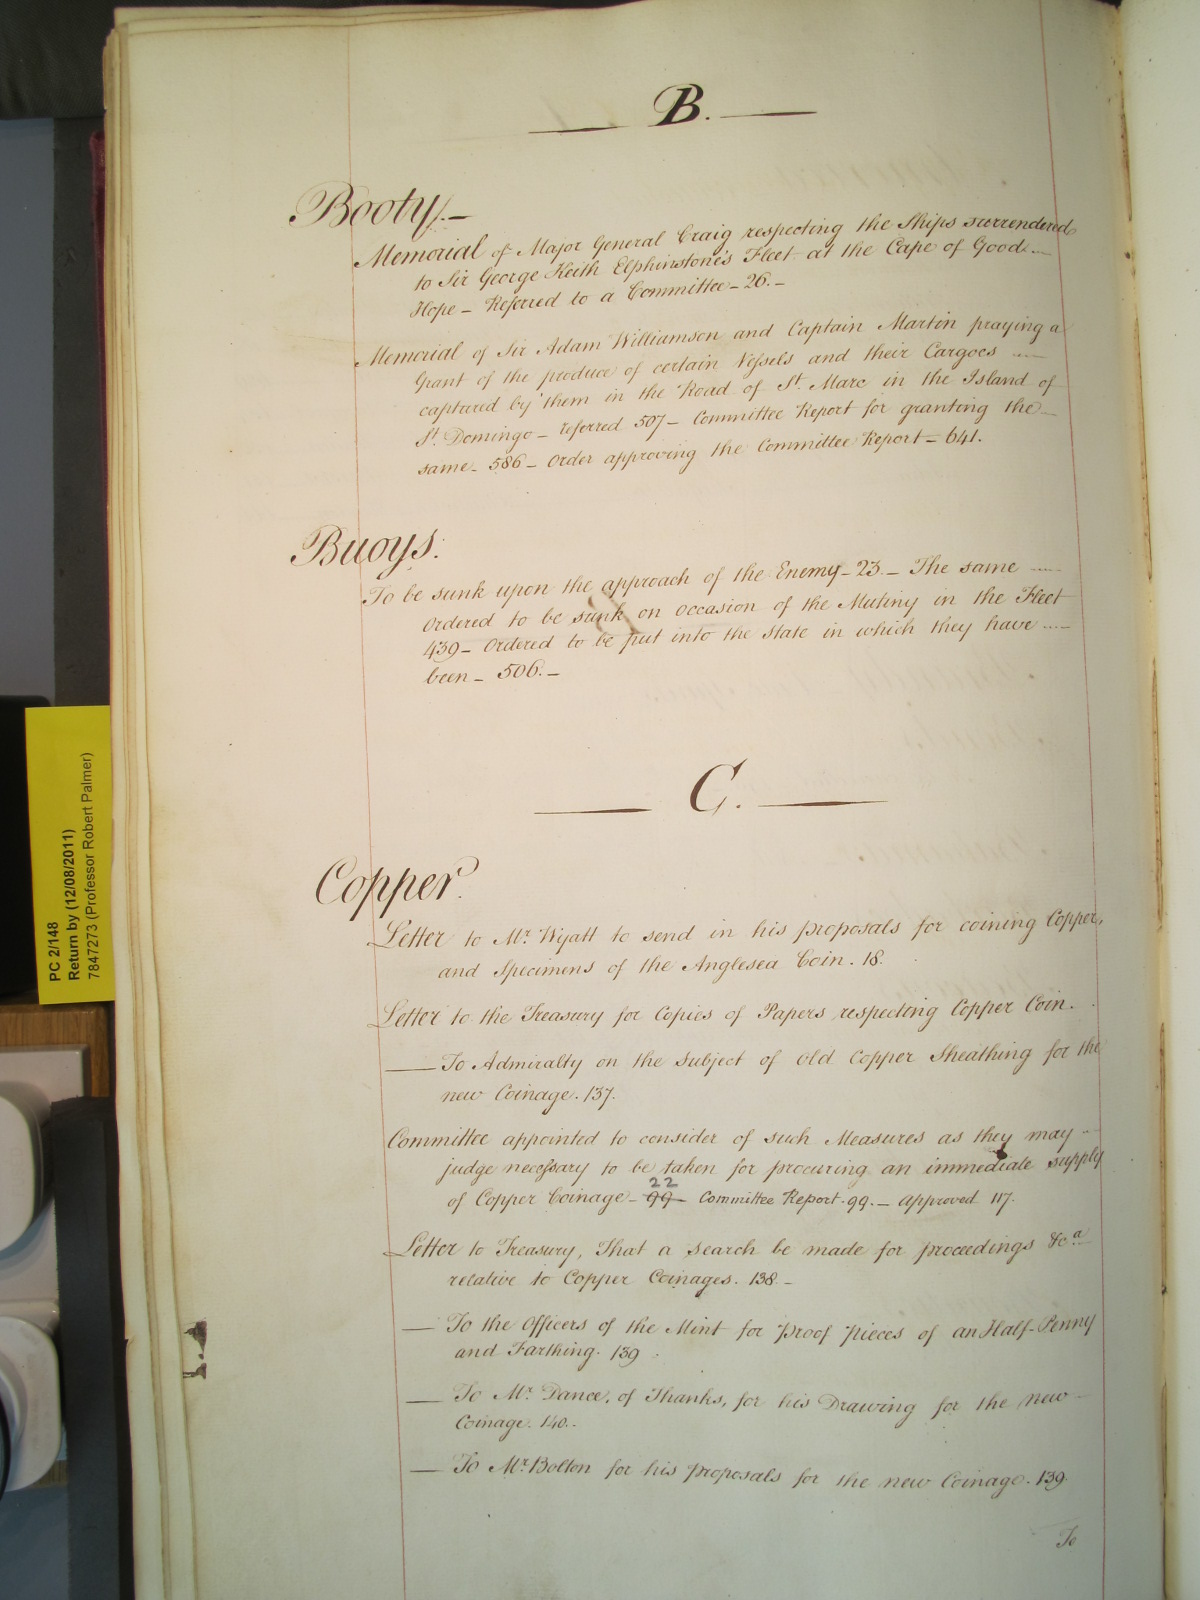 B.
Booty.—
Memorial of Major General Craig respecting the Ships surrendered
to Sir George Keith Elphinstone's Fleet at the Cape of Good
Hope — Referred to a Committee — 26. —
Memorial of Sir Adam Williamson and Captain Martin praying a
Grant of the produce of certain Vessels and their Cargoes
captured by them in the Road of St. Marc in the Island of
St. Domingo — referred 507 — Committee Report for granting the
same — 586 — Order approving the Committee Report — 641.
Buoys.
To be sunk upon the approach of the Enemy — 23 — The same
Ordered to be sunk on occasion of the Mutiny in the Fleet
439 — Ordered to be put into the state in which they have
been — 506. —
C.
Copper.
Letter to Mr. Wyatt to send in his proposals for coining Copper,
and Specimens of the Anglesea Coin. 18.
Letter to the Treasury for Copies of Papers respecting Copper Coin.
— To Admiralty on the subject of old Copper Sheathing for the
new Coinage. 137.
Committee appointed to consider of such Measures as they may
judge necessary to be taken for procuring an immediate supply
22
of Copper Coinage — 99 — Committee Report. 99. — Approved 117.
Letter to Treasury, That a search be made for proceedings &ca
relative to Copper Coinages. 138. —
— To the Officers of the Mint for Proof Pieces of an Half-Penny
and Farthing. 139
— To Mr. Dance, of Thanks, for his Drawing for the new
Coinage. 140.
— To Mr. Bolton for his Proposals for the new Coinage. 139
To
PC 2/148
Return by (12/08/2011)
7847273 (Professor Robert Palmer)